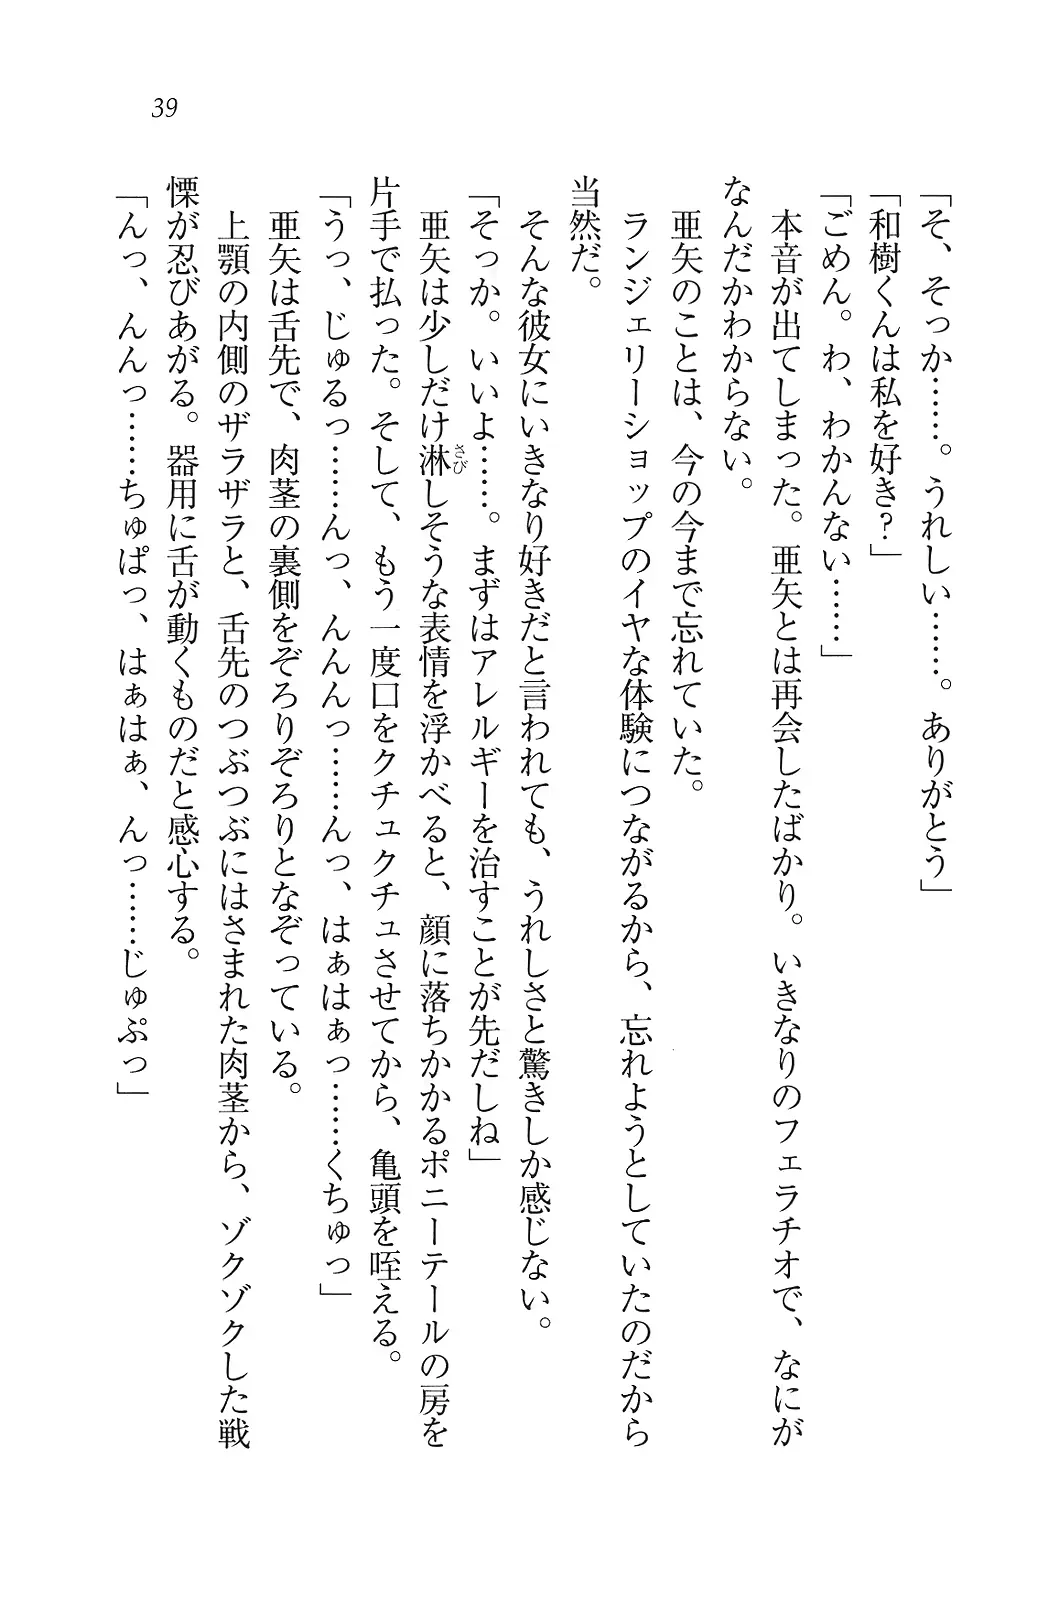 39
「そ、そっか……。うれしい……。ありがとう」
「和樹くんは私を好き？」
「ごめん。わ、わかんない……」
本音が出てしまった。亜矢とは再会したばかり。いきなりのフェラチオで、なにが
なんだかわからない。
亜矢のことは、今の今まで忘れていた。
ランジェリーショップのイヤな体験につながるから、忘れようとしていたのだから
当然だ。
そんな彼女にいきなり好きだと言われても、うれしさと驚きしか感じない。
「そっか。いいよ……。まずはアレルギーを治すことが先だしね」
亜矢は少しだけ淋さびしそうな表情を浮かべると、顔に落ちかかるポニーテールの房を
片手で払った。そして、もう一度口をクチュクチュさせてから、亀頭を咥える。
「うっ、じゅるっ……んっ、んんんっ……んっ、はぁはぁっ……くちゅっ」
亜矢は舌先で、肉茎の裏側をぞろりぞろりとなぞっている。
上顎の内側のザラザラと、舌先のつぶつぶにはさまれた肉茎から、ゾクゾクした戦
慄が忍びあがる。器用に舌が動くものだと感心する。
「んっ、んんっ……ちゅぱっ、はぁはぁ、んっ……じゅぷっ」